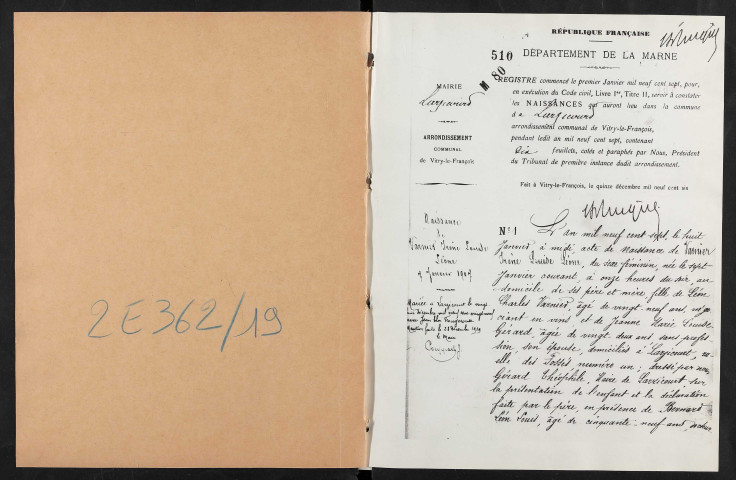 2E362/19
RÉPUBLIQUE FRANÇAISE
510
DÉPARTEMENT DE LA MARNE
M 80
MAIRIE
Larzicourt
ARRONDISSEMENT
COMMUNAL
de Vitry-le-François
REGISTRE commencé le premier Janvier mil neuf cent sept, pour,
en exécution du Code civil, Livre Ier, Titre II, servir à constater
les NAISSANCES qui auront lieu dans la commune
d e Larzicourt
arrondissement communal de Vitry-le-François,
pendant ledit an mil neuf cent sept, contenant
dix feuillets, cotés et paraphés par Nous, Président
du Tribunal de première instance dudit arrondissement.
Fait à Vitry-le-François, le quinze décembre mil neuf cent six
Naissance
de
Varnier Irène Louise
Léone
7 Janvier 1907
Mariée à Larzicourt le vingt
le Maire
N° 1
L'an mil neuf cent sept, le huit
Janvier, à midi acte de naissance de Varnier
Irène Louise Léone, du sexe féminin, née le sept
Janvier courant, à onze heures du soir, au
domicile de ses père et mère, fille de Léon
Charles Varnier, âgé de vingt neuf ans, négo
ciant en vins et de Jeanne Marie Louise
Gérard, âgée de vingt deux ans sans profes
sion, son épouse, domiciliés à Larzicourt, ru
elle des Fossés, numéro un ; dressé par nous,
Gérard Théophile, Maire de Larzicourt sur
la présentation de l'enfant et la déclaration
faite par le père, en présence de Bernard
Léon Louis, âgé de cinquante-neuf ans,